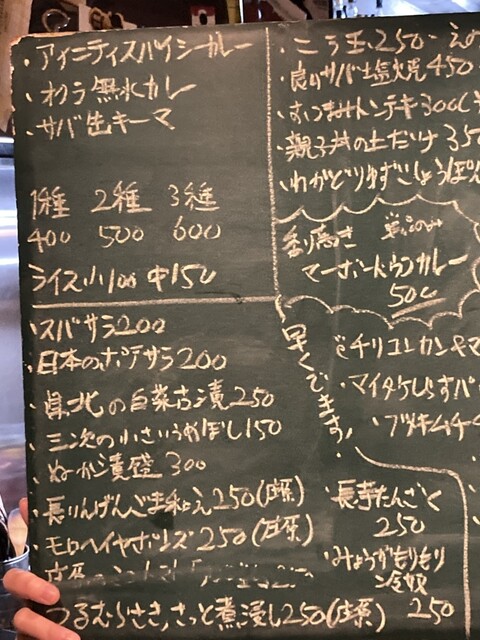 ・アイニティスパイシーカレー
・オクラ無水カレー
・サバ出キーマ
1種 2種 3種
400 500 600
ライス小100 中150
・スパサラ200
・日本のポテサラ200
・県北の白菜古漬250
・三次の小さいうめぼし150
・ぬか漬盛300
・長りんげんごま和え250(庄原)
・モロヘイヤポーズ250(庄原)
つるむらさき、さっと煮浸し250(庄原)
・ニラ玉250
・良いサバ塩焼450
・おつまみトンテキ300
・親子丼の上だけ350
・わかどりゆずこしょうぽん
割高き 単品のみ
マーボートウフカレー
500
早くできます。
・チリコンカン&マ
・マイタケしらすパ
・ブツキムチ
・長芋たんざく
250
・みょうがもりもり
冷奴
250